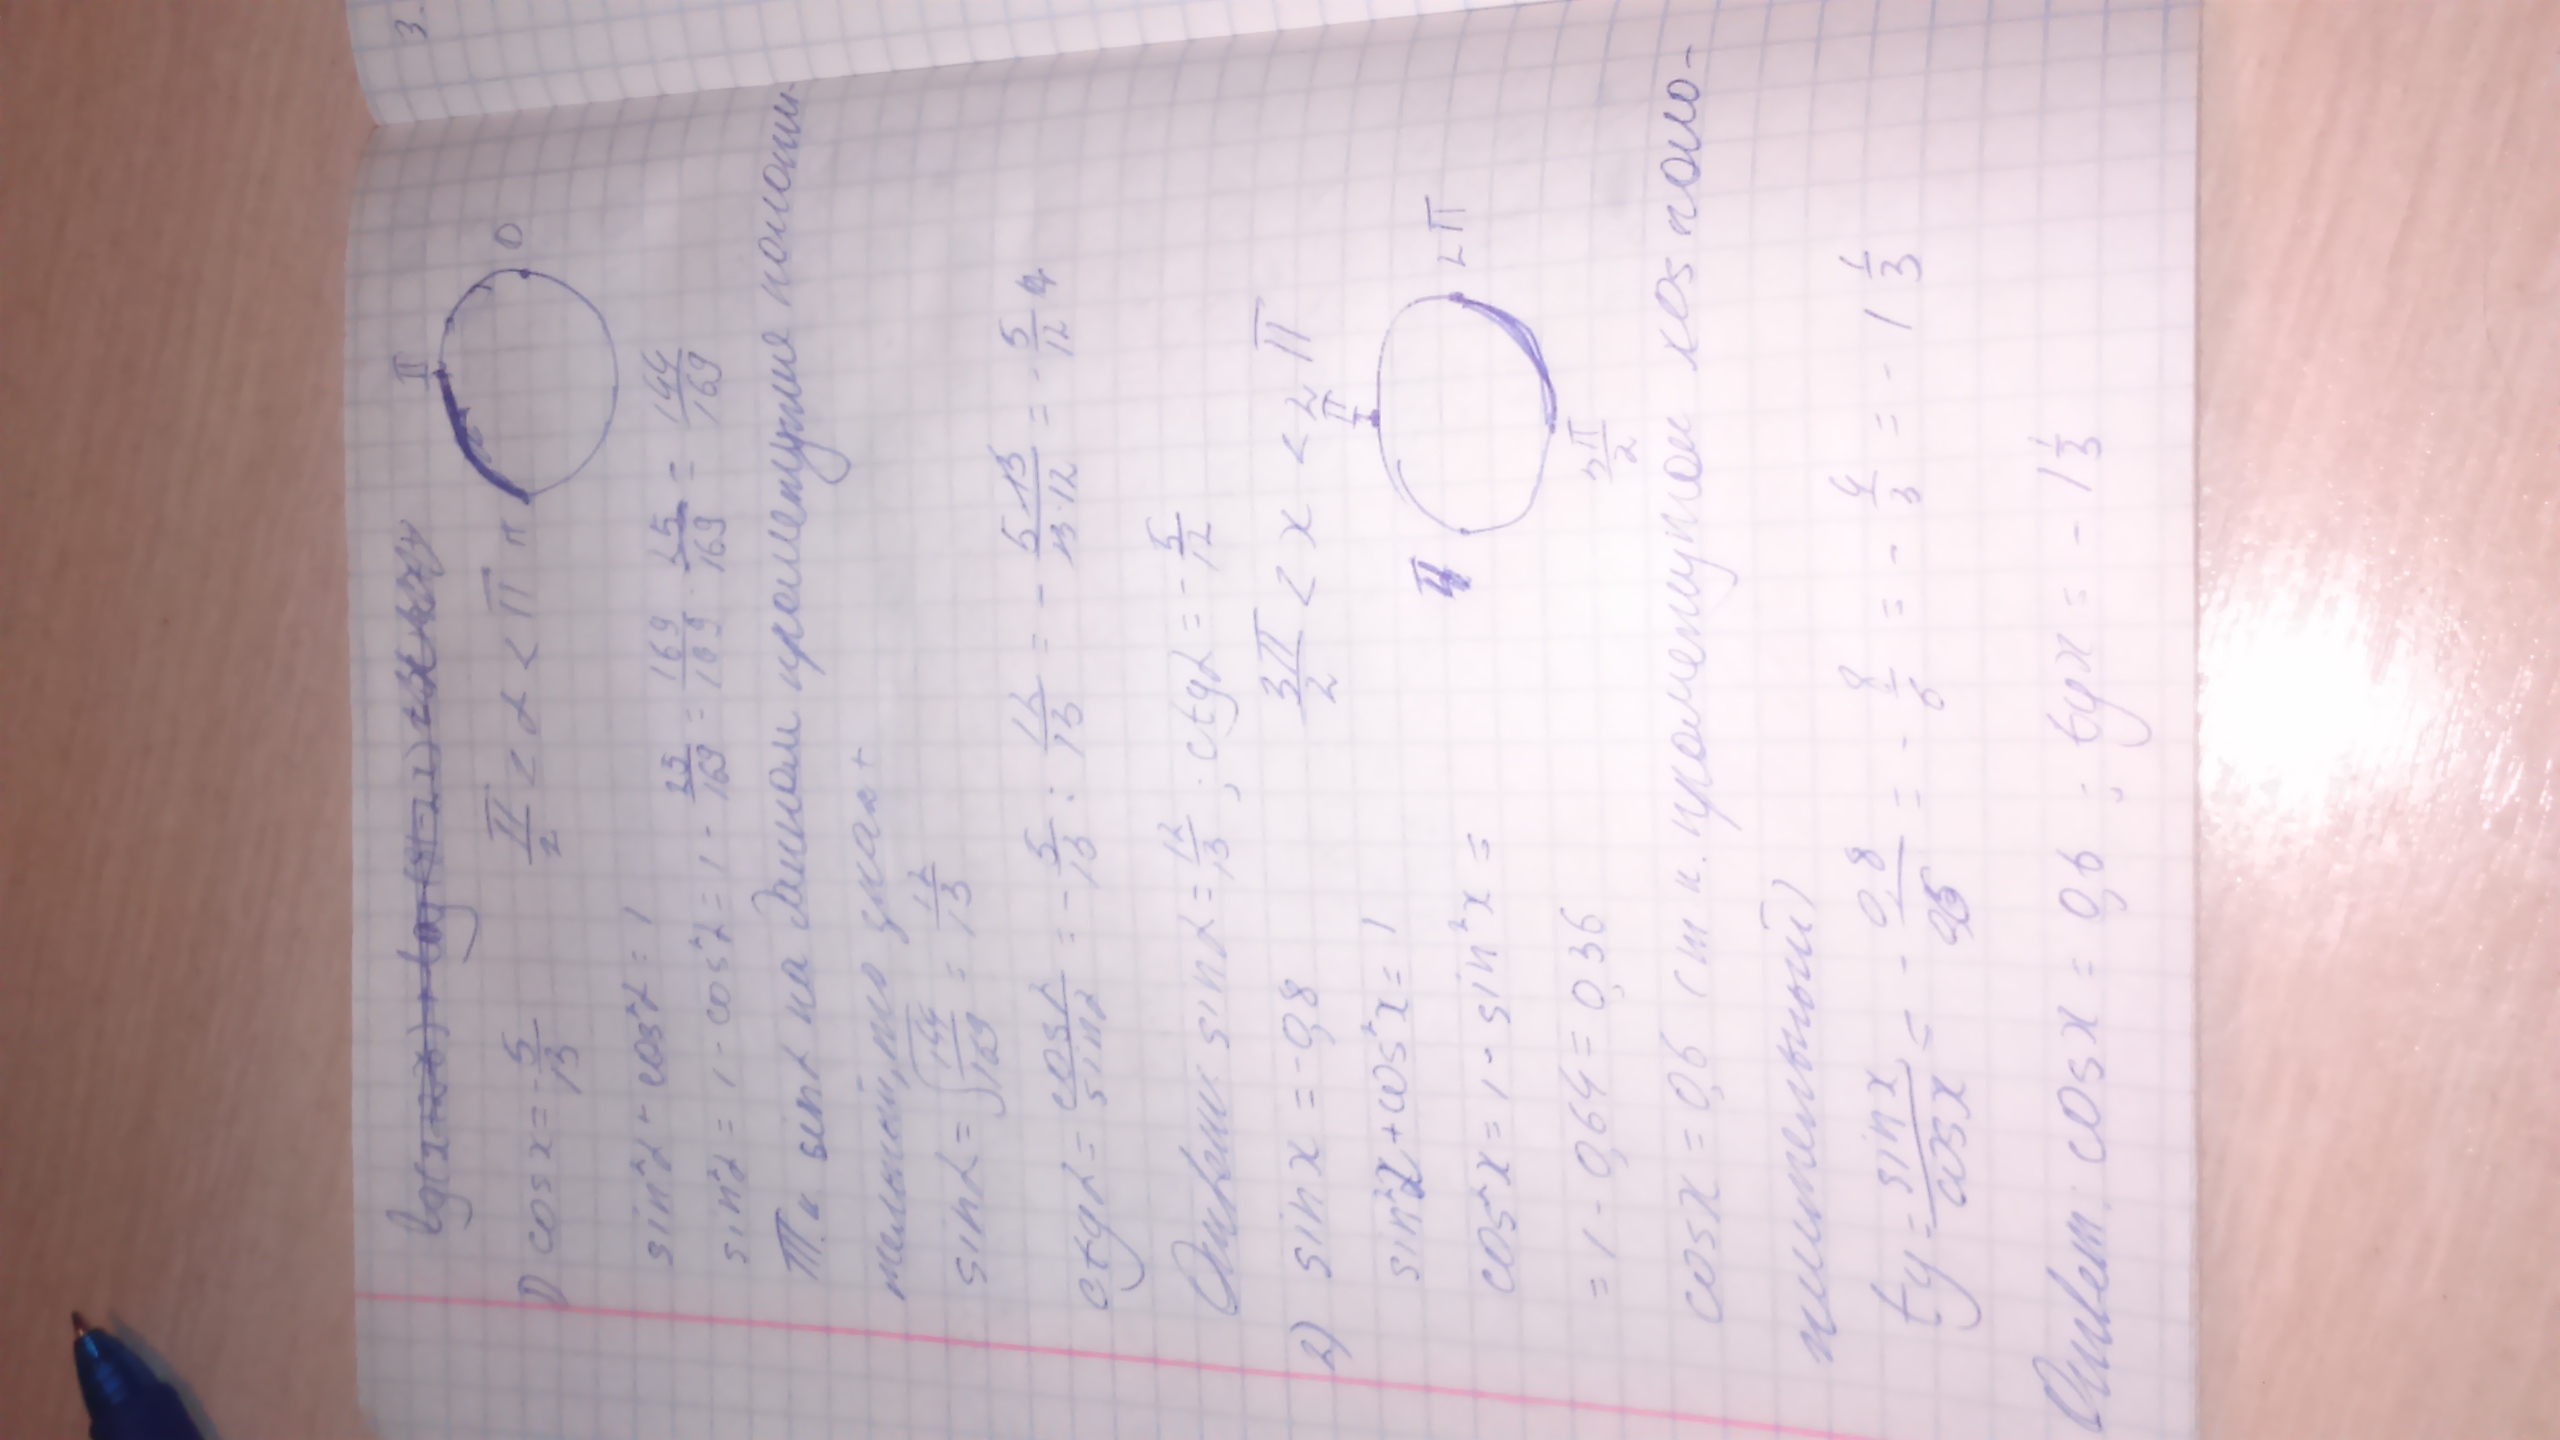 3.
1) cos x = -5/13 π/2 < α < π
π/2
π 0
sin²α + cos²α = 1
sin²α = 1 - cos²α = 1 - 25/169 = 169/169 - 25/169 = 144/169
Т.к sinα на данном промежутке положи-
тельный, то знак +
sinα = √144/169 = 12/13
ctgα = cosα/sinα = -5/13 : 12/13 = - 5·13/13·12 = -5/12
Ответ: sinα = 12/13; ctgα = -5/12
2) sin x = -0,8 3π/2 < x < 2π
sin²x + cos²x = 1
π/2
π 2π
3π/2
cos²x = 1 - sin²x =
= 1 - 0,64 = 0,36
cos x = 0,6 (т.к. промежуток cos поло-
жительный)
tg = sin x/cos x = - 0,8/0,6 = - 8/6 = - 4/3 = - 1 1/3
Ответ: cos x = 0,6 ; tg x = - 1 1/3